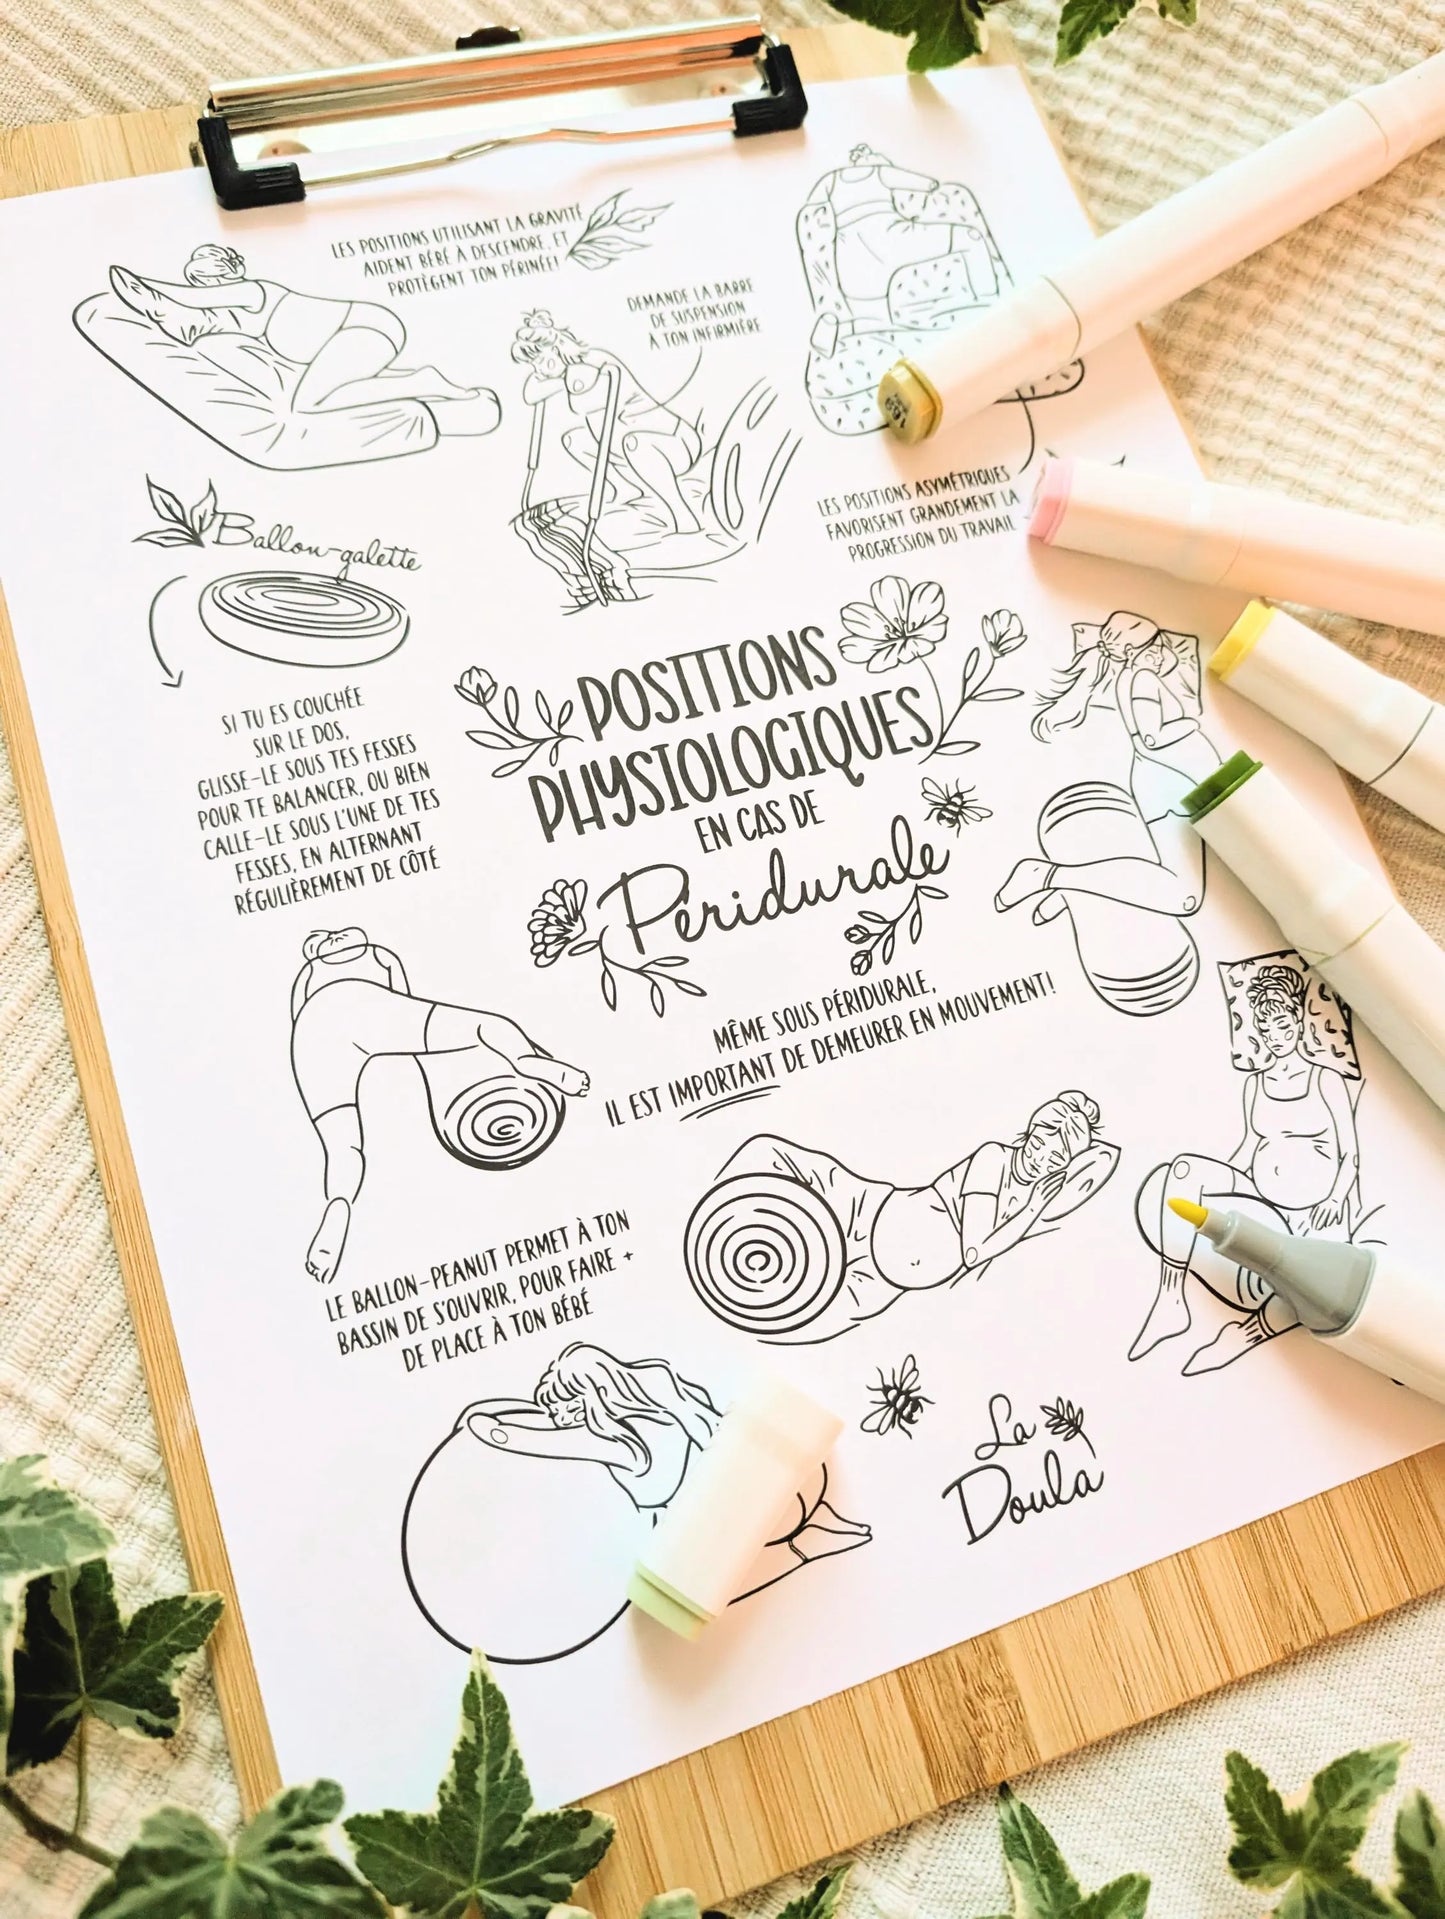 LES POSITIONS UTILISANT LA GRAVITÉ
AIDENT BÉBÉ À DESCENDRE, ET
PROTÈGENT TON PÉRINÉE!
DEMANDE LA BARRE
DE SUSPENSION
À TON INFIRMIÈRE
LES POSITIONS ASYMÉTRIQUES
FAVORISENT GRANDEMENT LA
PROGRESSION DU TRAVAIL
Ballon-galette
SI TU ES COUCHÉE
SUR LE DOS,
GLISSE-LE SOUS TES FESSES
POUR TE BALANCER, OU BIEN
CALLE-LE SOUS L'UNE DE TES
FESSES, EN ALTERNANT
RÉGULIÈREMENT DE CÔTÉ
POSITIONS
PHYSIOLOGIQUES
EN CAS DE
Péridurale
MÊME SOUS PÉRIDURALE,
IL EST IMPORTANT DE DEMEURER EN MOUVEMENT!
LE BALLON-PEANUT PERMET À TON
BASSIN DE S'OUVRIR, POUR FAIRE +
DE PLACE À TON BÉBÉ
La
Doula